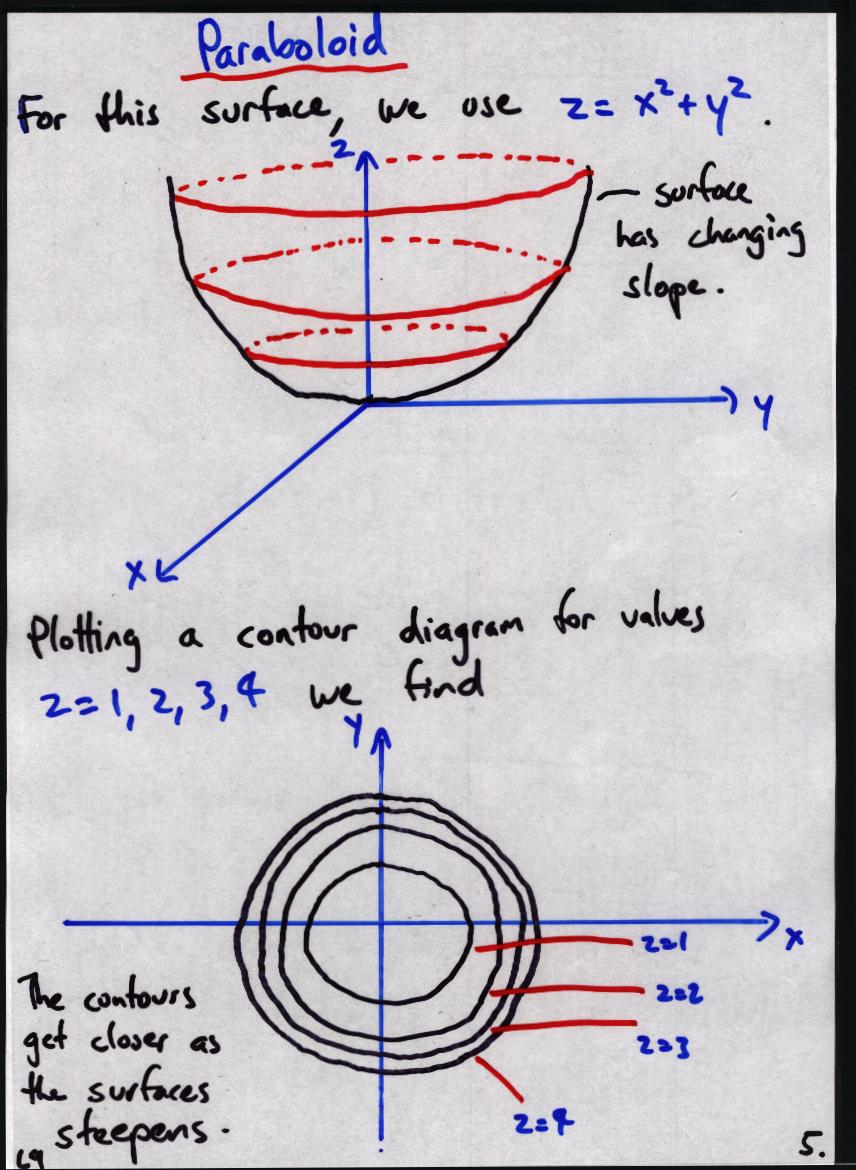 Paraboloid
For this surface, we use z = x² + y².
z
surface
has changing
slope.
y
x
Plotting a contour diagram for values
z = 1, 2, 3, 4 we find
y
x
z=1
z=2
z=3
z=4
The contours
get closer as
the surfaces
steepens.
69
5.